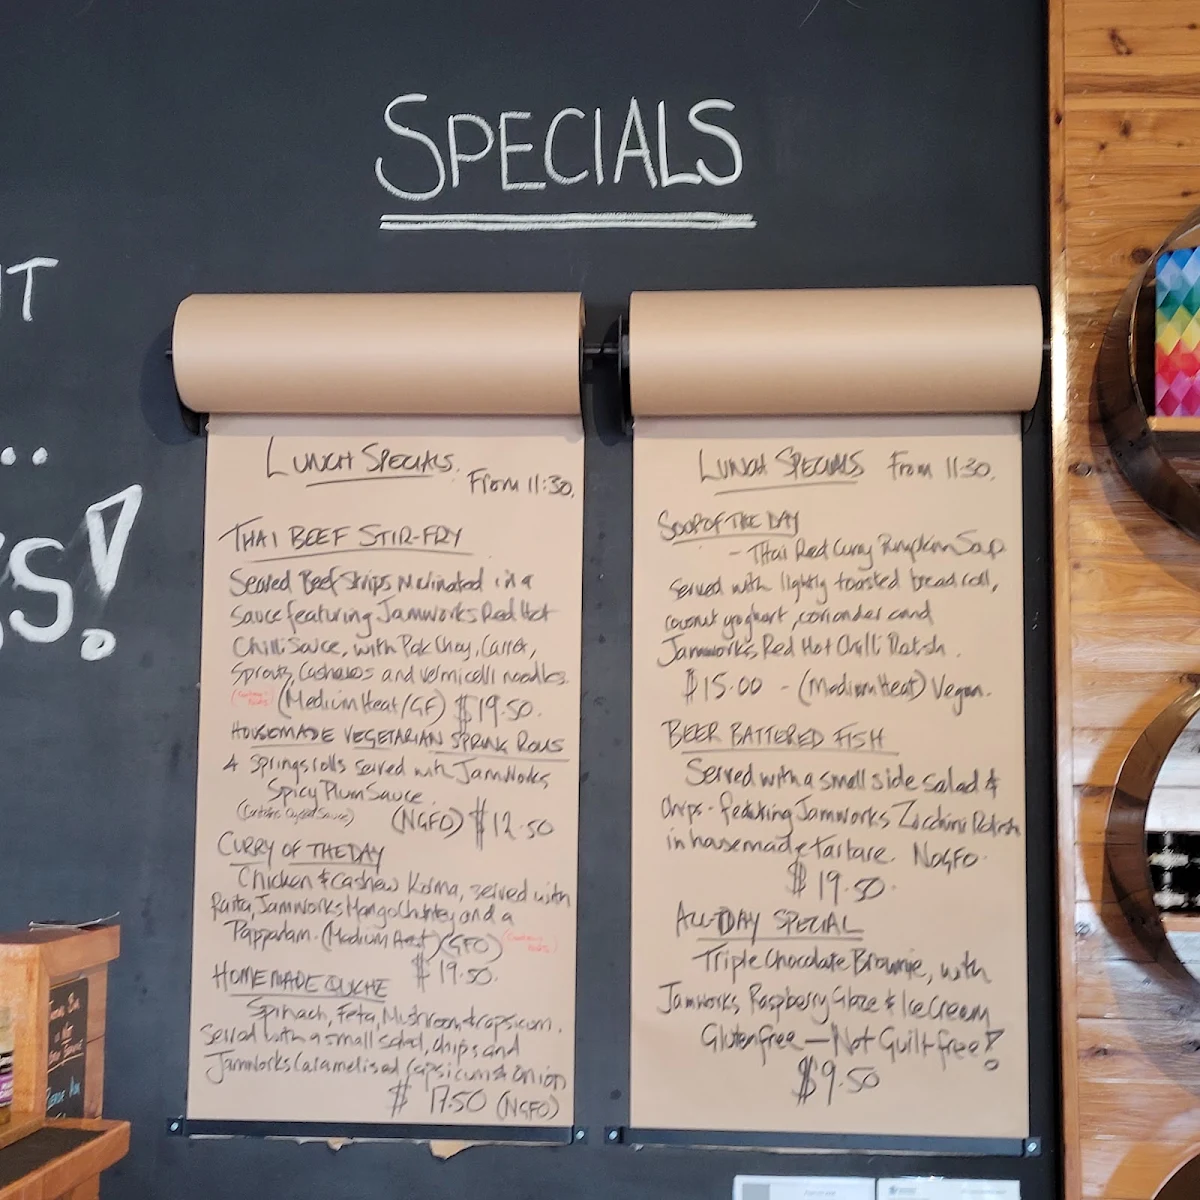 SPECIALS
IT
...
S!
LUNCH SPECIALS.
From 11:30.
THAI BEEF STIR-FRY
Seared Beef Strips Marinated in a
Sauce featuring Jamworks Red Hot
Chilli Sauce, with Pak Choy, Carrot,
Sprouts, Cashews and vermicelli noodles.
(Contains nuts) (Medium Heat/GF) $19.50.
HOUSEMADE VEGETARIAN SPRING ROLLS
4 Springsrolls served with JamWorks
Spicy Plum Sauce.
(Contains Oyster Sauce) (NGFO) $12.50
CURRY OF THE DAY
Chicken & Cashew Korma, served with
Raita, JamWorks Mango Chutney and a
Pappadam. (Medium Heat) (GFO) (Contains nuts)
$19.50.
HOMEMADE QUICHE
Spinach, Feta, Mushroom & capsicum.
Served with a small salad, chips and
JamWorks Caramelised Capsicum & Onion
$17.50 (NGFO)
LUNCH SPECIALS From 11:30.
SOUP OF THE DAY
- Thai Red Curry Pumpkin Soup
Served with lightly toasted bread roll,
coconut yoghurt, coriander and
Jamworks Red Hot Chilli Relish.
$15.00 - (Medium Heat) Vegan.
BEER BATTERED FISH
Served with a small side salad &
Chips - featuring Jamworks Zucchini Relish
in housemade tartare. NoGFO.
$19.50.
ALL-DAY SPECIAL
Triple Chocolate Brownie, with
Jamworks Raspberry Glaze & Ice Cream
Gluten free — Not Guilt free!
$9.50